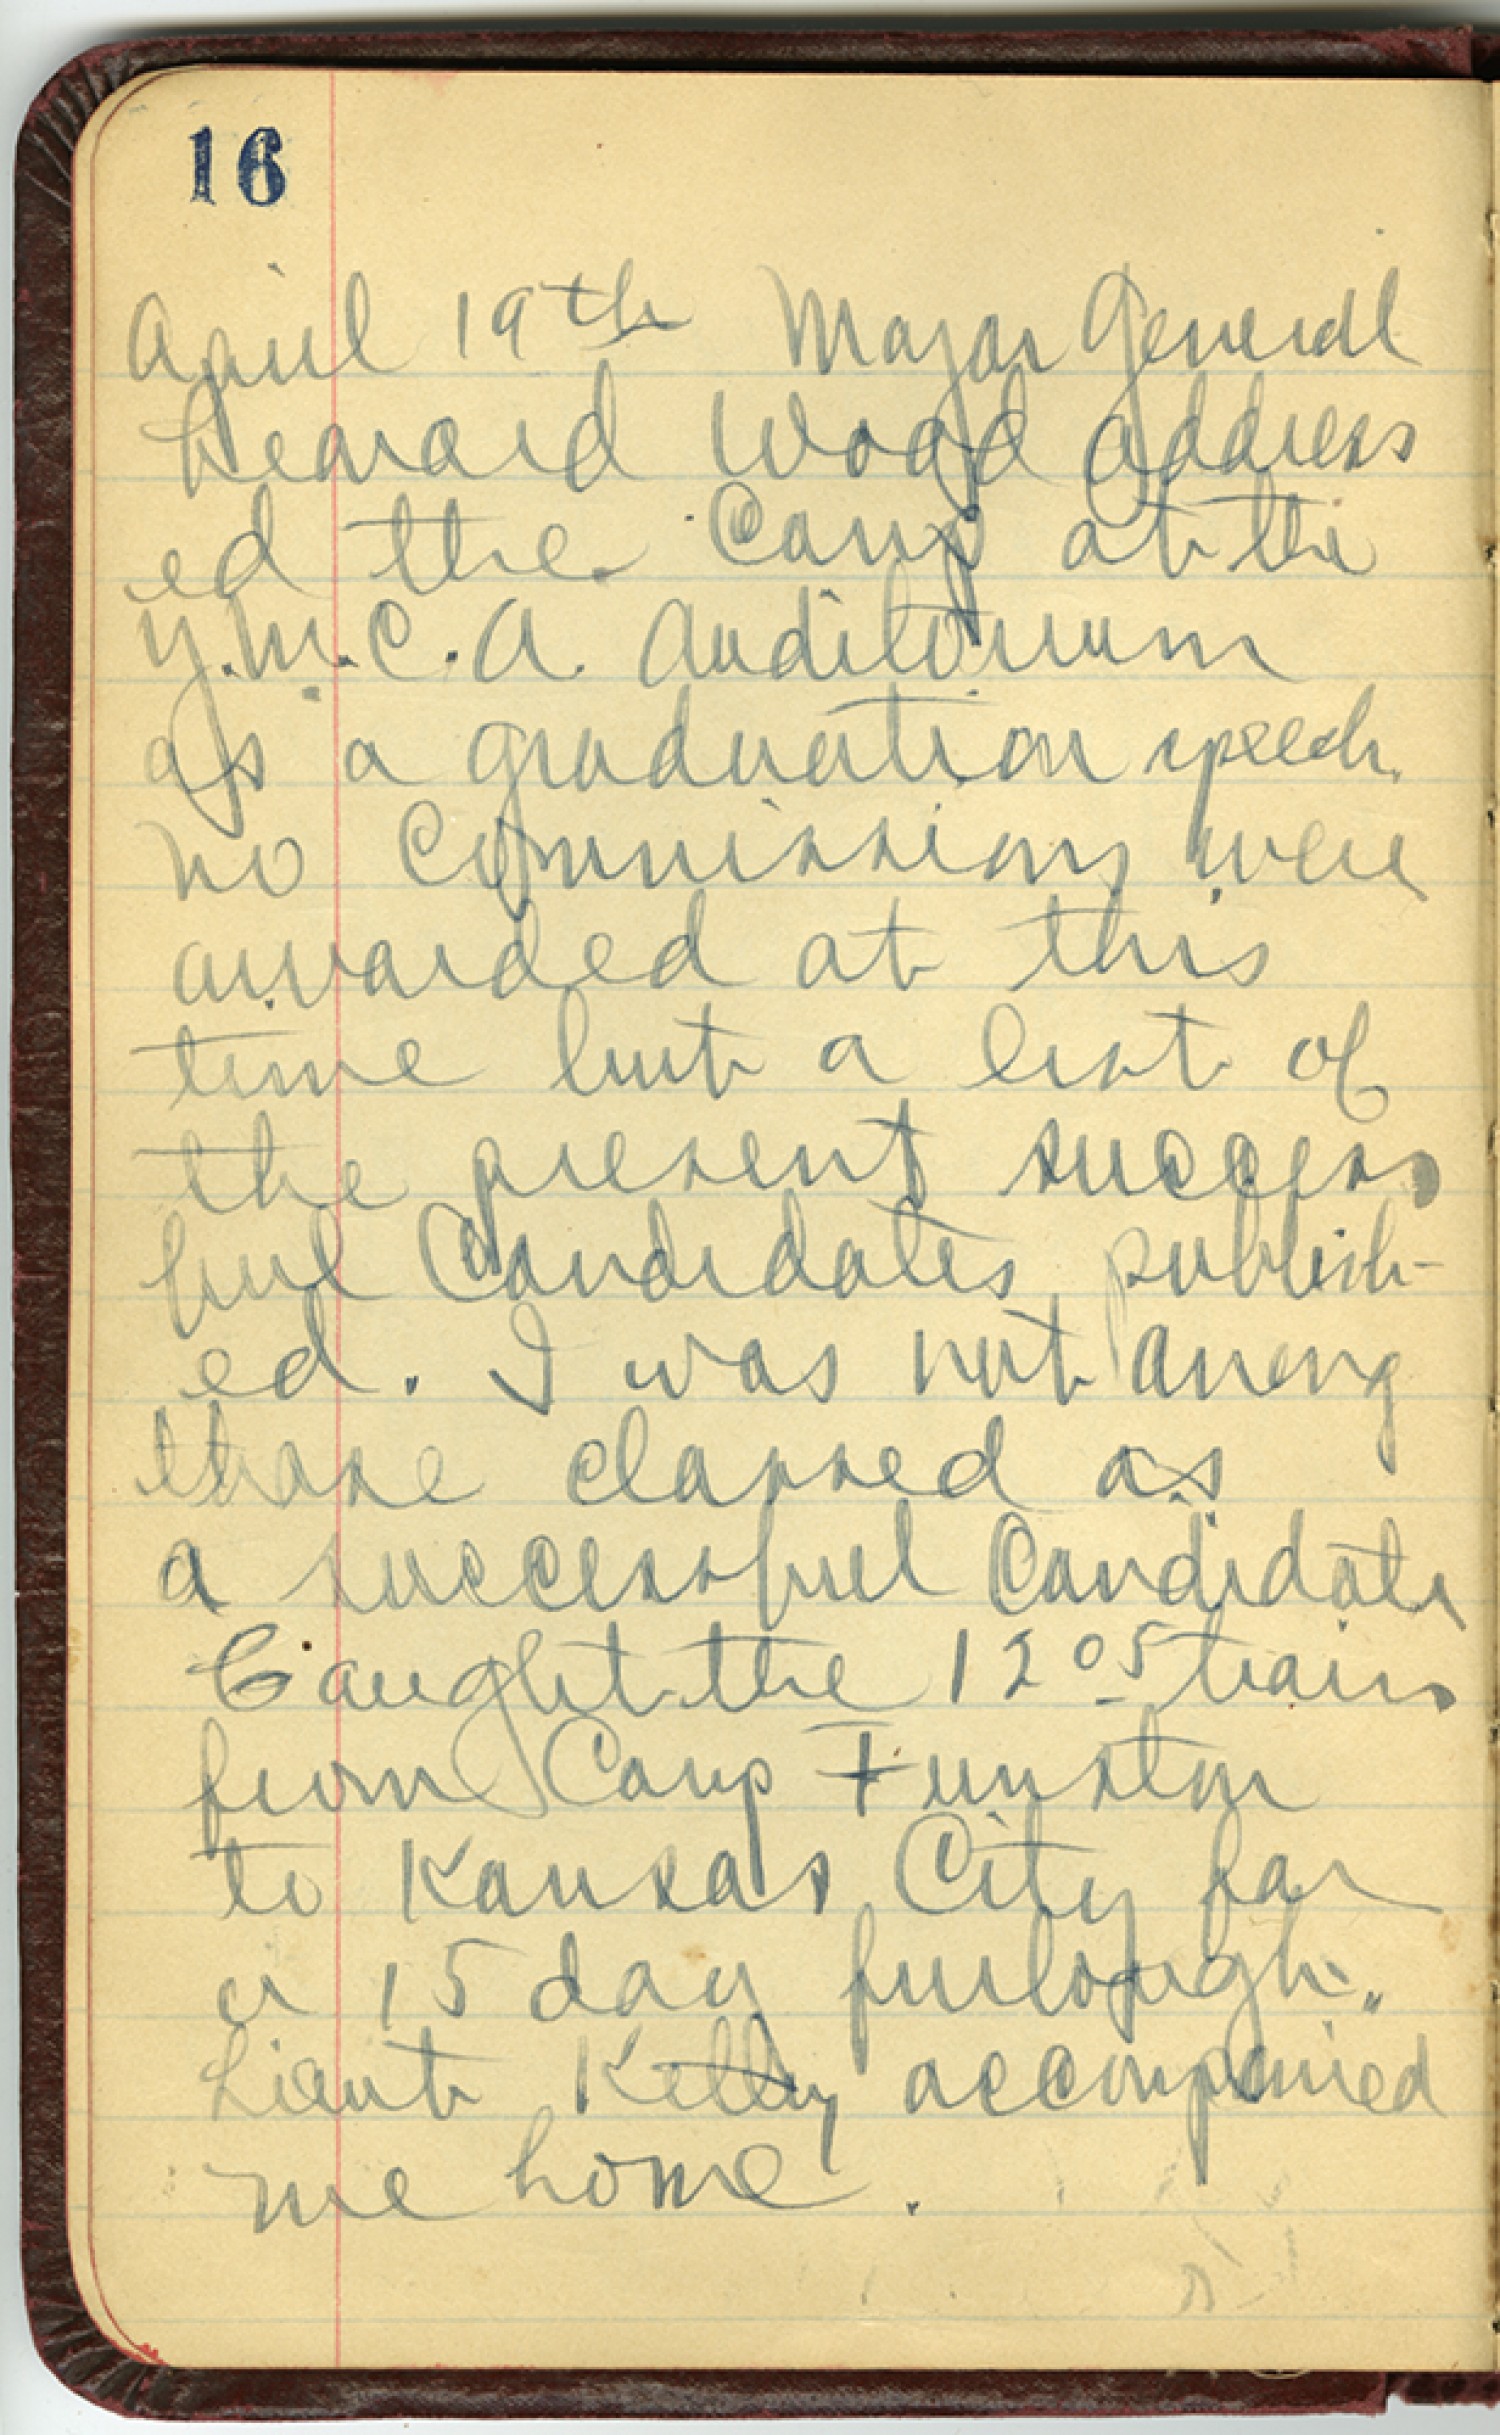 16
April 19th Major General
Leanard Wood address
ed the Camp at the
Y.M.C.A. Auditorium
as a graduation speech.
No Commissions were
awarded at this
time but a list of
the present success
ful Candidates publish-
ed. I was not among
those classed as
a successful Candidate
Caught the 12 05 train
from Camp Funston
to Kansas City for
a 15 day furlough.
Lieut Kelly accompanied
me home.